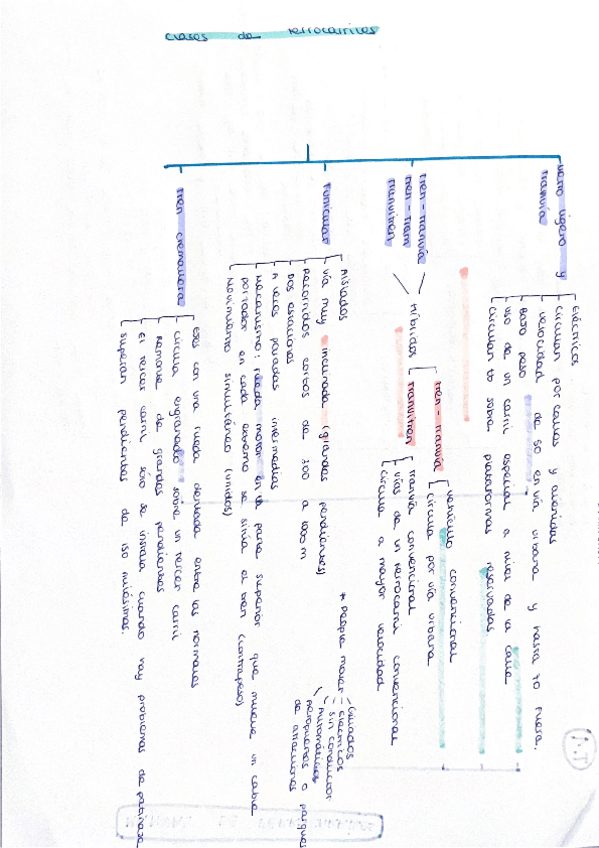 clases de ferrocarriles
Metro ligero y
tranvía
Eléctricos
circulan por calles y avenidas
velocidad de 50 en vía urbana y hasta 70 fuera.
Bajo peso
uso de un carril especial a nivel de la calle
circulan tb sobre plataformas reservadas
tren - tranvía
tren - tram
tranvitren
Híbridos
tren - tranvía
vehículo convencional
circula por vía urbana
tranvitren
tranvía convencional
vías de un ferrocarril convencional
circula a mayor velocidad
Funicular
Aislados
vía muy inclinada (grandes pendientes)
Recorridos cortos de 300 a 1000 m
Dos estaciones
A veces paradas intermedias
Mecanismo: rueda motor en la parte superior que mueve un cable
portador en cada extremo se sitúa el tren (contrapeso)
Movimiento simultáneo (unidos)
* People mover
Guiados
eléctricos
sin conductor
Automáticos
Aeropuertos o parques
de atracciones
tren cremallera
Ejes con una rueda dentada entre las normales
circula engranado sobre un tercer carril
Remonte de grandes pendientes
El tercer carril sólo se instala cuando hay problemas de patinaje
superan pendientes de 150 milésimas.